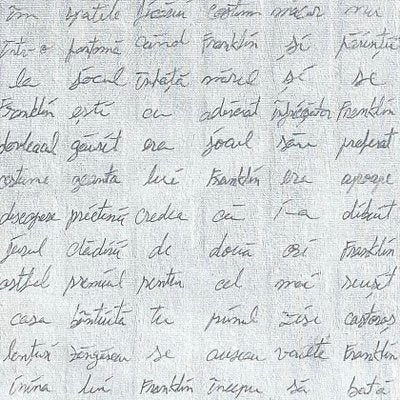 în spatele fiecărui costum măcar nu
într-o fantomă când Franklin și părinții
la jocul înhață marele și se
Franklin ești cu adevărat înfricoșător Franklin
dovleacul găsit era jocul său preferat
costume geanta lui Franklin era aproape
descopere prietenii credea că i-a dibuit
jurul clădirii de două ori Franklin
astfel premiul pentru cel mai reușit
casa bântuită tu primul ziși castoraș
lanțuri zăngăneau se auzeau vaiete Franklin
inima lui Franklin începu să bată